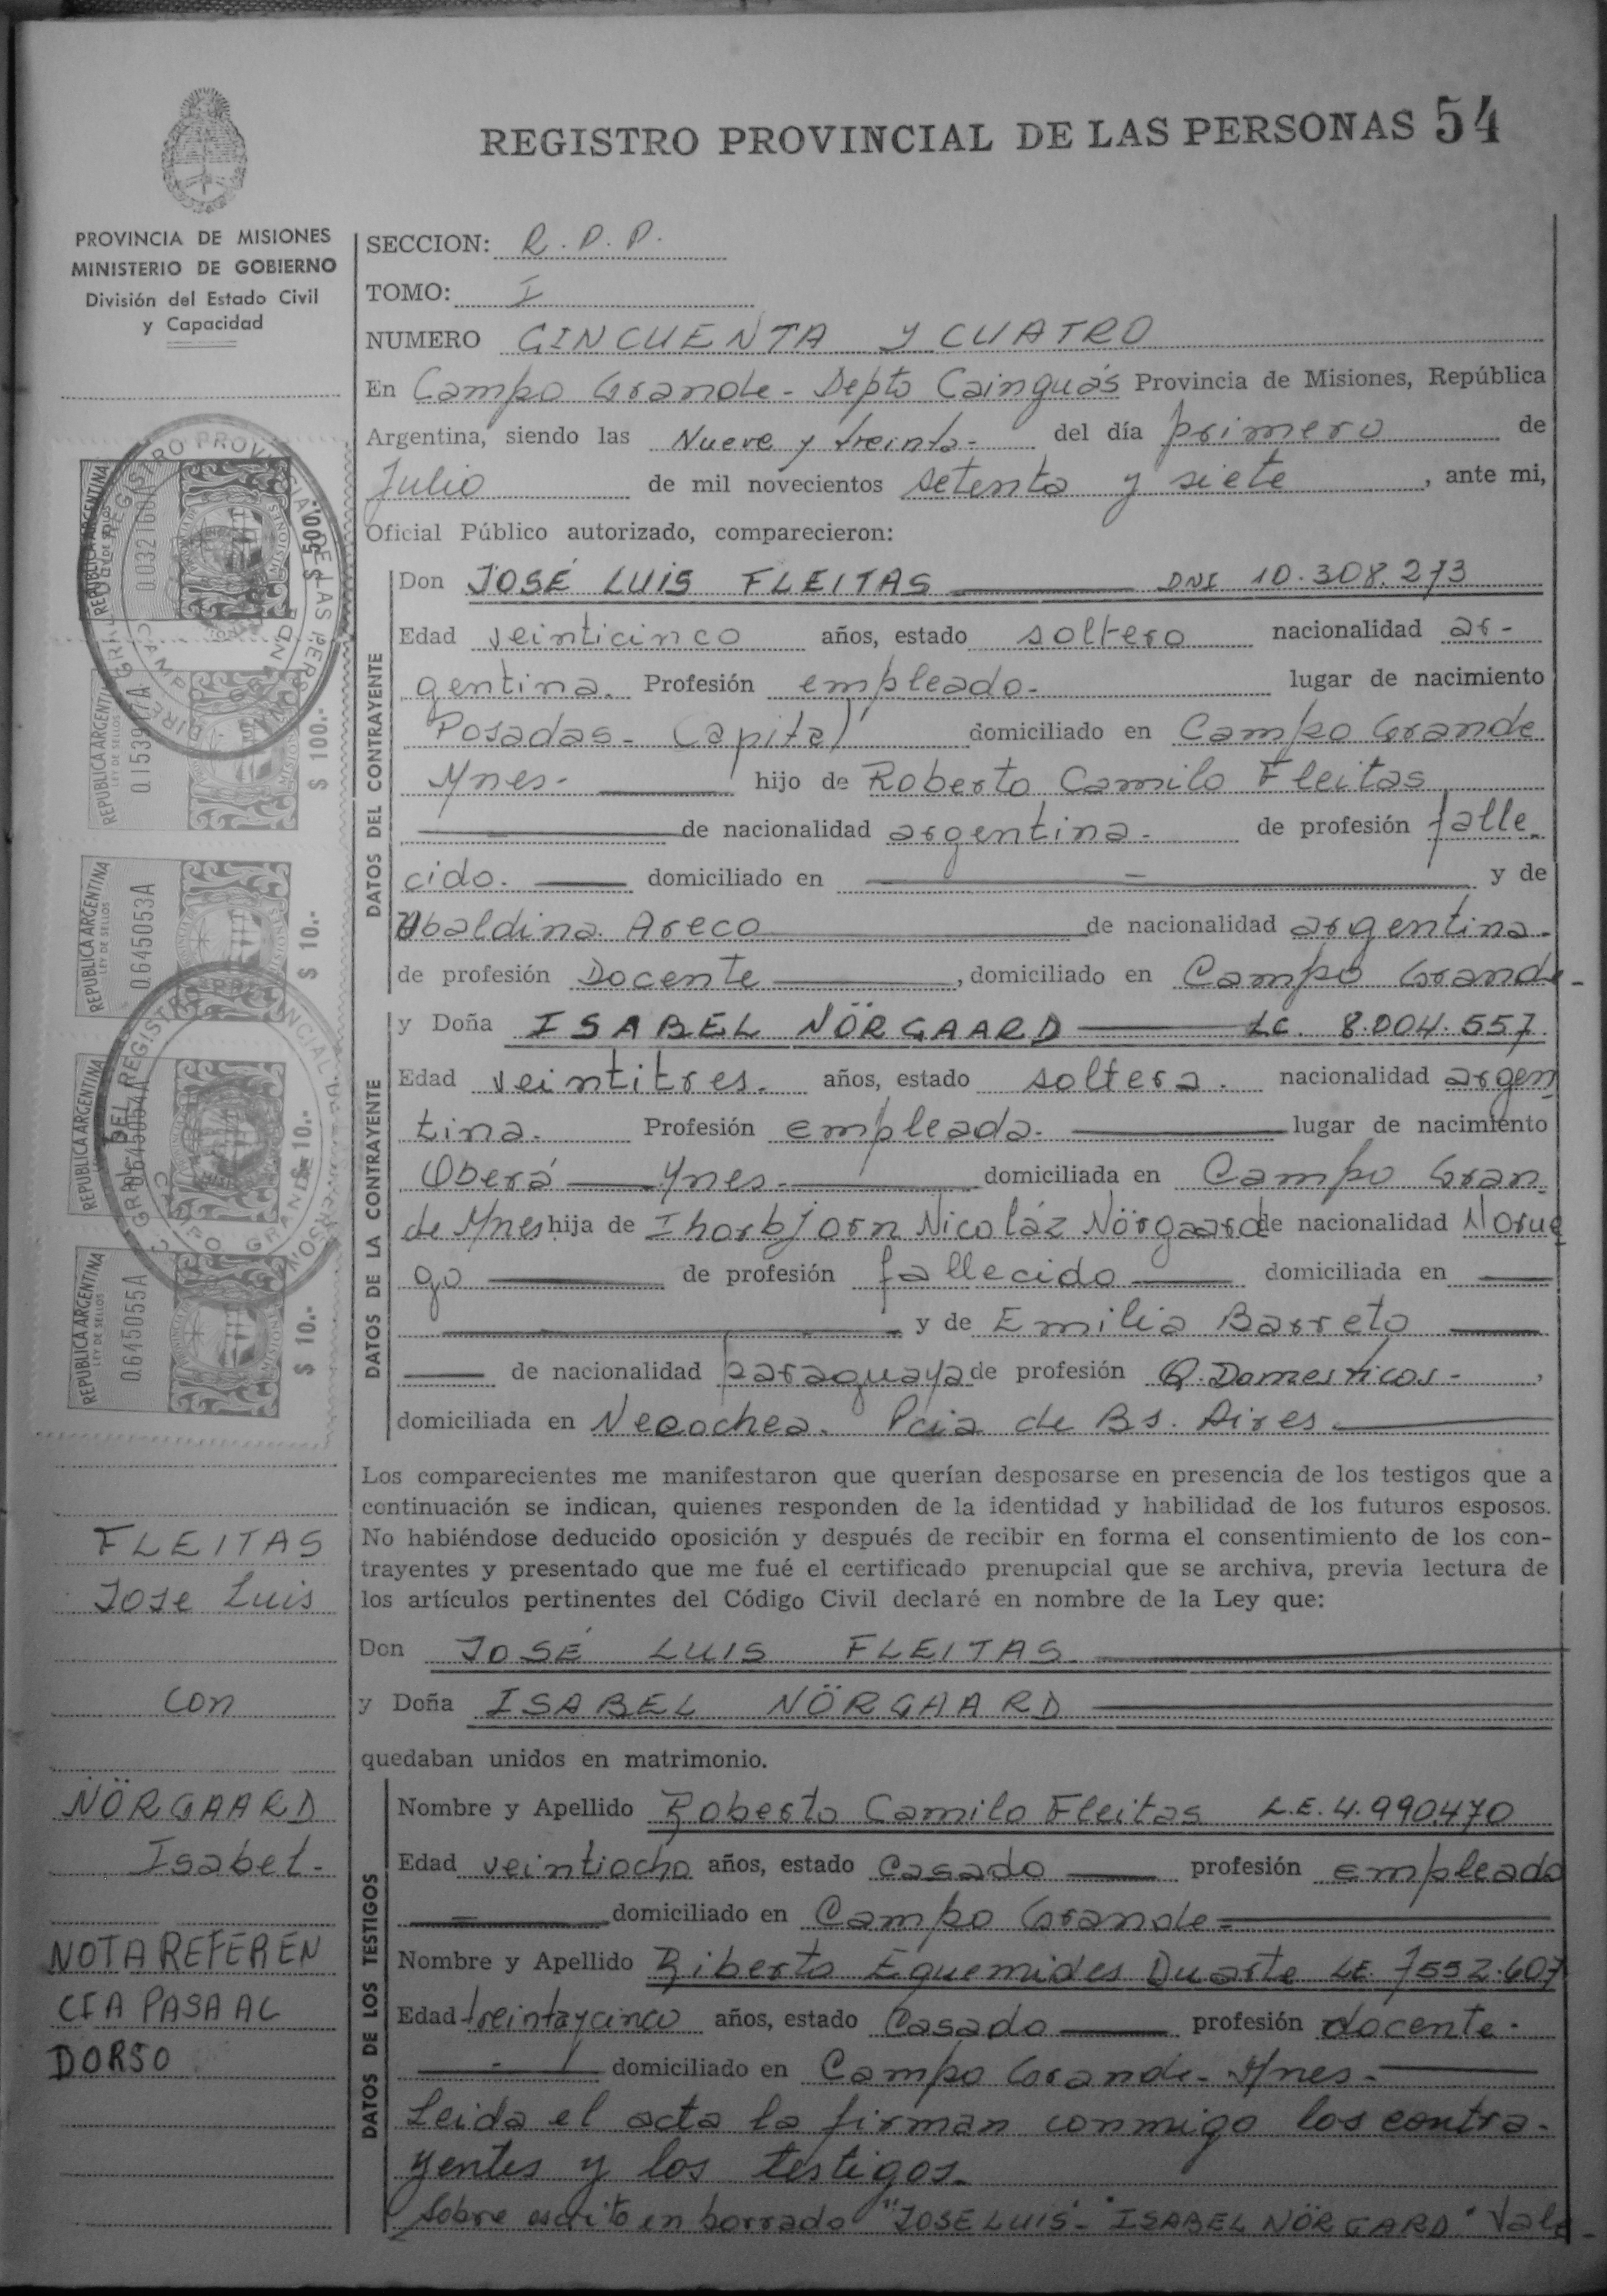 REGISTRO PROVINCIAL DE LAS PERSONAS 54
PROVINCIA DE MISIONES
MINISTERIO DE GOBIERNO
División del Estado Civil
y Capacidad
SECCION: R.P.P.
TOMO: I
NUMERO CINCUENTA Y CUATRO
En Campo Grande - Depto Cainguás Provincia de Misiones, República
Argentina, siendo las Nueve y treinta- del día primero de
Julio de mil novecientos setenta y siete, ante mi,
Oficial Público autorizado, comparecieron:
DATOS DEL CONTRAYENTE
Don JOSÉ LUIS FLEITAS DNI 10.308.273
Edad veinticinco años, estado soltero nacionalidad ar-
gentina. Profesión empleado- lugar de nacimiento
Posadas- Capital domiciliado en Campo Grande
Mnes- hijo de Roberto Camilo Fleitas
de nacionalidad argentina- de profesión falle-
cido. domiciliado en y de
Ubaldina Areco de nacionalidad argentina-
de profesión Docente, domiciliado en Campo Grande-
DATOS DE LA CONTRAYENTE
y Doña ISABEL NÖRGAARD LC. 8.004.557
Edad veintitres- años, estado soltera. nacionalidad argen
tina. Profesión empleada- lugar de nacimiento
Oberá Mnes- domiciliada en Campo Gran
de Mnes hija de Thorbjorn Nicoláz Nörgaard de nacionalidad Norue
go de profesión fallecido domiciliada en
y de Emilia Barreto
de nacionalidad paraguaya de profesión Q. Domesticos-,
domiciliada en Necochea. Pcia de Bs. Aires-
Los comparecientes me manifestaron que querían desposarse en presencia de los testigos que a
continuación se indican, quienes responden de la identidad y habilidad de los futuros esposos.
No habiéndose deducido oposición y después de recibir en forma el consentimiento de los con-
trayentes y presentado que me fué el certificado prenupcial que se archiva, previa lectura de
los artículos pertinentes del Código Civil declaré en nombre de la Ley que:
Don JOSÉ LUIS FLEITAS
y Doña ISABEL NÖRGAARD
quedaban unidos en matrimonio.
DATOS DE LOS TESTIGOS
Nombre y Apellido Roberto Camilo Fleitas L.E. 4.990.470
Edad veintiocho años, estado Casado profesión empleado
domiciliado en Campo Grande-
Nombre y Apellido Riberto Eguemides Duarte LE. 7552.607
Edad treintaycinco años, estado Casado profesión docente-
domiciliado en Campo Grande- Mnes-
Leida el acta la firman conmigo los contra-
yentes y los testigos-
Sobre escrito en borrado "JOSE LUIS"- "ISABEL NÖRGARD" Vale-
REPUBLICA ARGENTINA
LEY DE SELLOS
$ 500.-
REPUBLICA ARGENTINA
LEY DE SELLOS
$ 100.-
REPUBLICA ARGENTINA
LEY DE SELLOS
0.645053A
$ 10.-
REPUBLICA ARGENTINA
0.645054A
$ 10.-
REPUBLICA ARGENTINA
LEY DE SELLOS
0.645055A
$ 10.-
FLEITAS
Jose Luis
con
NÖRGAARD
Isabel-
NOTA REFEREN
CIA PASA AL
DORSO